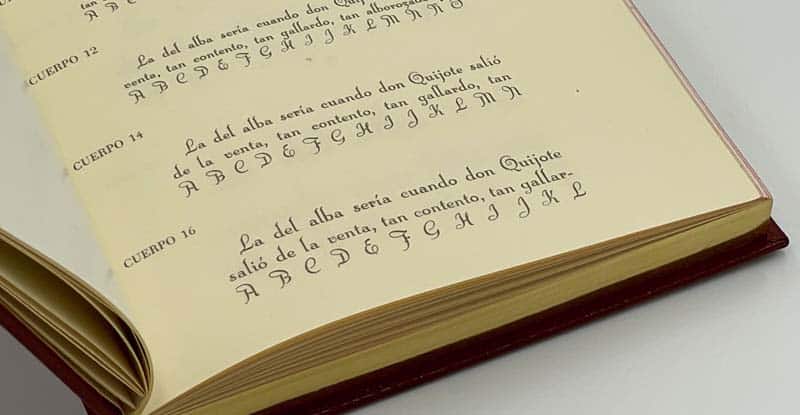 La del alba sería cuando don
CUERPO 12
venta, tan contento, tan gallardo, tan
A B C D E F G H I J K L M N Ñ O
La del alba sería cuando don Quijote salió
CUERPO 14
de la venta, tan contento, tan gallardo, tan
A B C D E F G H I J K L M N
La del alba sería cuando don Quijote
CUERPO 16
salió de la venta, tan contento, tan gallar-
A B C D E F G H I J K L